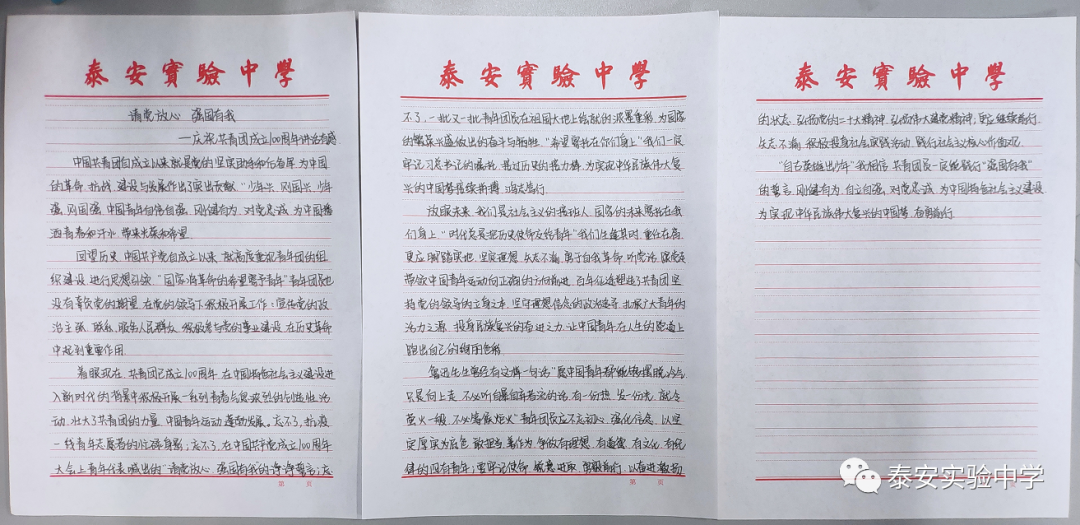 泰安實驗中學
请党放心 强国有我
—庆祝共青团成立100周年讲话有感
中国共青团自成立以来就是党的坚实助手和后备军，为中国
的革命、抗战、建设与发展作出了突出贡献。"少年兴，则国兴，少年
强，则国强"中国青年自信自强，刚健有为，对党忠诚，为中国播
洒青春和汗水，带来光荣和希望。
回望历史，中国共产党自成立以来，就高度重视青年团的组
织建设，进行思想引领。"国家将革命的希望寄予青年"青年团员也
没有辜负党的期望，在党的领导下积极开展工作：宣传党的政
治主张，联系、服务人民群众，积极参与党的事业建设，在历史革命
中起到重要作用。
着眼现在，共青团已成立100周年，在中国特色社会主义建设进
入新时代的背景中积极开展一系列有着的创造性活
动，壮大了共青团的力量，中国青年运动蓬勃发展。忘不了，抗疫
一线青年志愿者的身影；忘不了，在中国共产党成立100周年
大会上青年代表喊出的"请党放心，强国有我"的誓言；忘
第 页
泰安實驗中學
不了，一批又一批青年团员在祖国大地上，为国家
的繁荣兴盛做出的奋斗与牺牲。"希望寄托在你们身上"我们一定
牢记习总书记的嘱托，接过历史的接力棒，为实现中华民族伟大复
兴的中国梦接续拼搏，踏步前行。
放眼未来，我们是社会主义的接班人，国家的未来寄托在我
们身上。"时代总是把历史使命交给青年"我们生逢其时，重任在肩，
更应脚踏实地，坚定理想，矢志不渝，勇于自我革命，听党话，跟党走
带领中国青年运动向正确的方向前进。百年征途塑造了共青团坚
持党的领导的立身之本，坚守理想信念的政治之魂，扎根广大青年的
活力之源，投身民族复兴的奋进之力，让中国青年在人生的跑道上
跑出自己的绚丽色彩。
鲁迅先生曾经有这样一句话"愿中国青年都能摆脱冷气，
只是向上走，不必听自暴自弃者流的话，有一份热，发一份光，就令
萤火一般，不必等候炬火"青年团员应不忘初心，强化信念，以坚
实厚实为底色，敢担当，善作为，争做有理想，有道德，有文化，有纪
律的四有青年；要牢记使命，锐意进取，勇毅前行，以奋进激扬
第 页
泰安實驗中學
的状态，弘扬党的二十大精神，弘扬伟大建党精神，更应继续前行，
矢志不渝，积极投身社会实践活动，践行社会主义核心价值观。
"自古英雄出少年"我相信，共青团员一定能践行"强国有我"
的誓言，刚健有为，自立自强，对党忠诚，为中国特色社会主义建设
为实现中华民族伟大复兴的中国梦，奋勇前行。
泰安实验中学